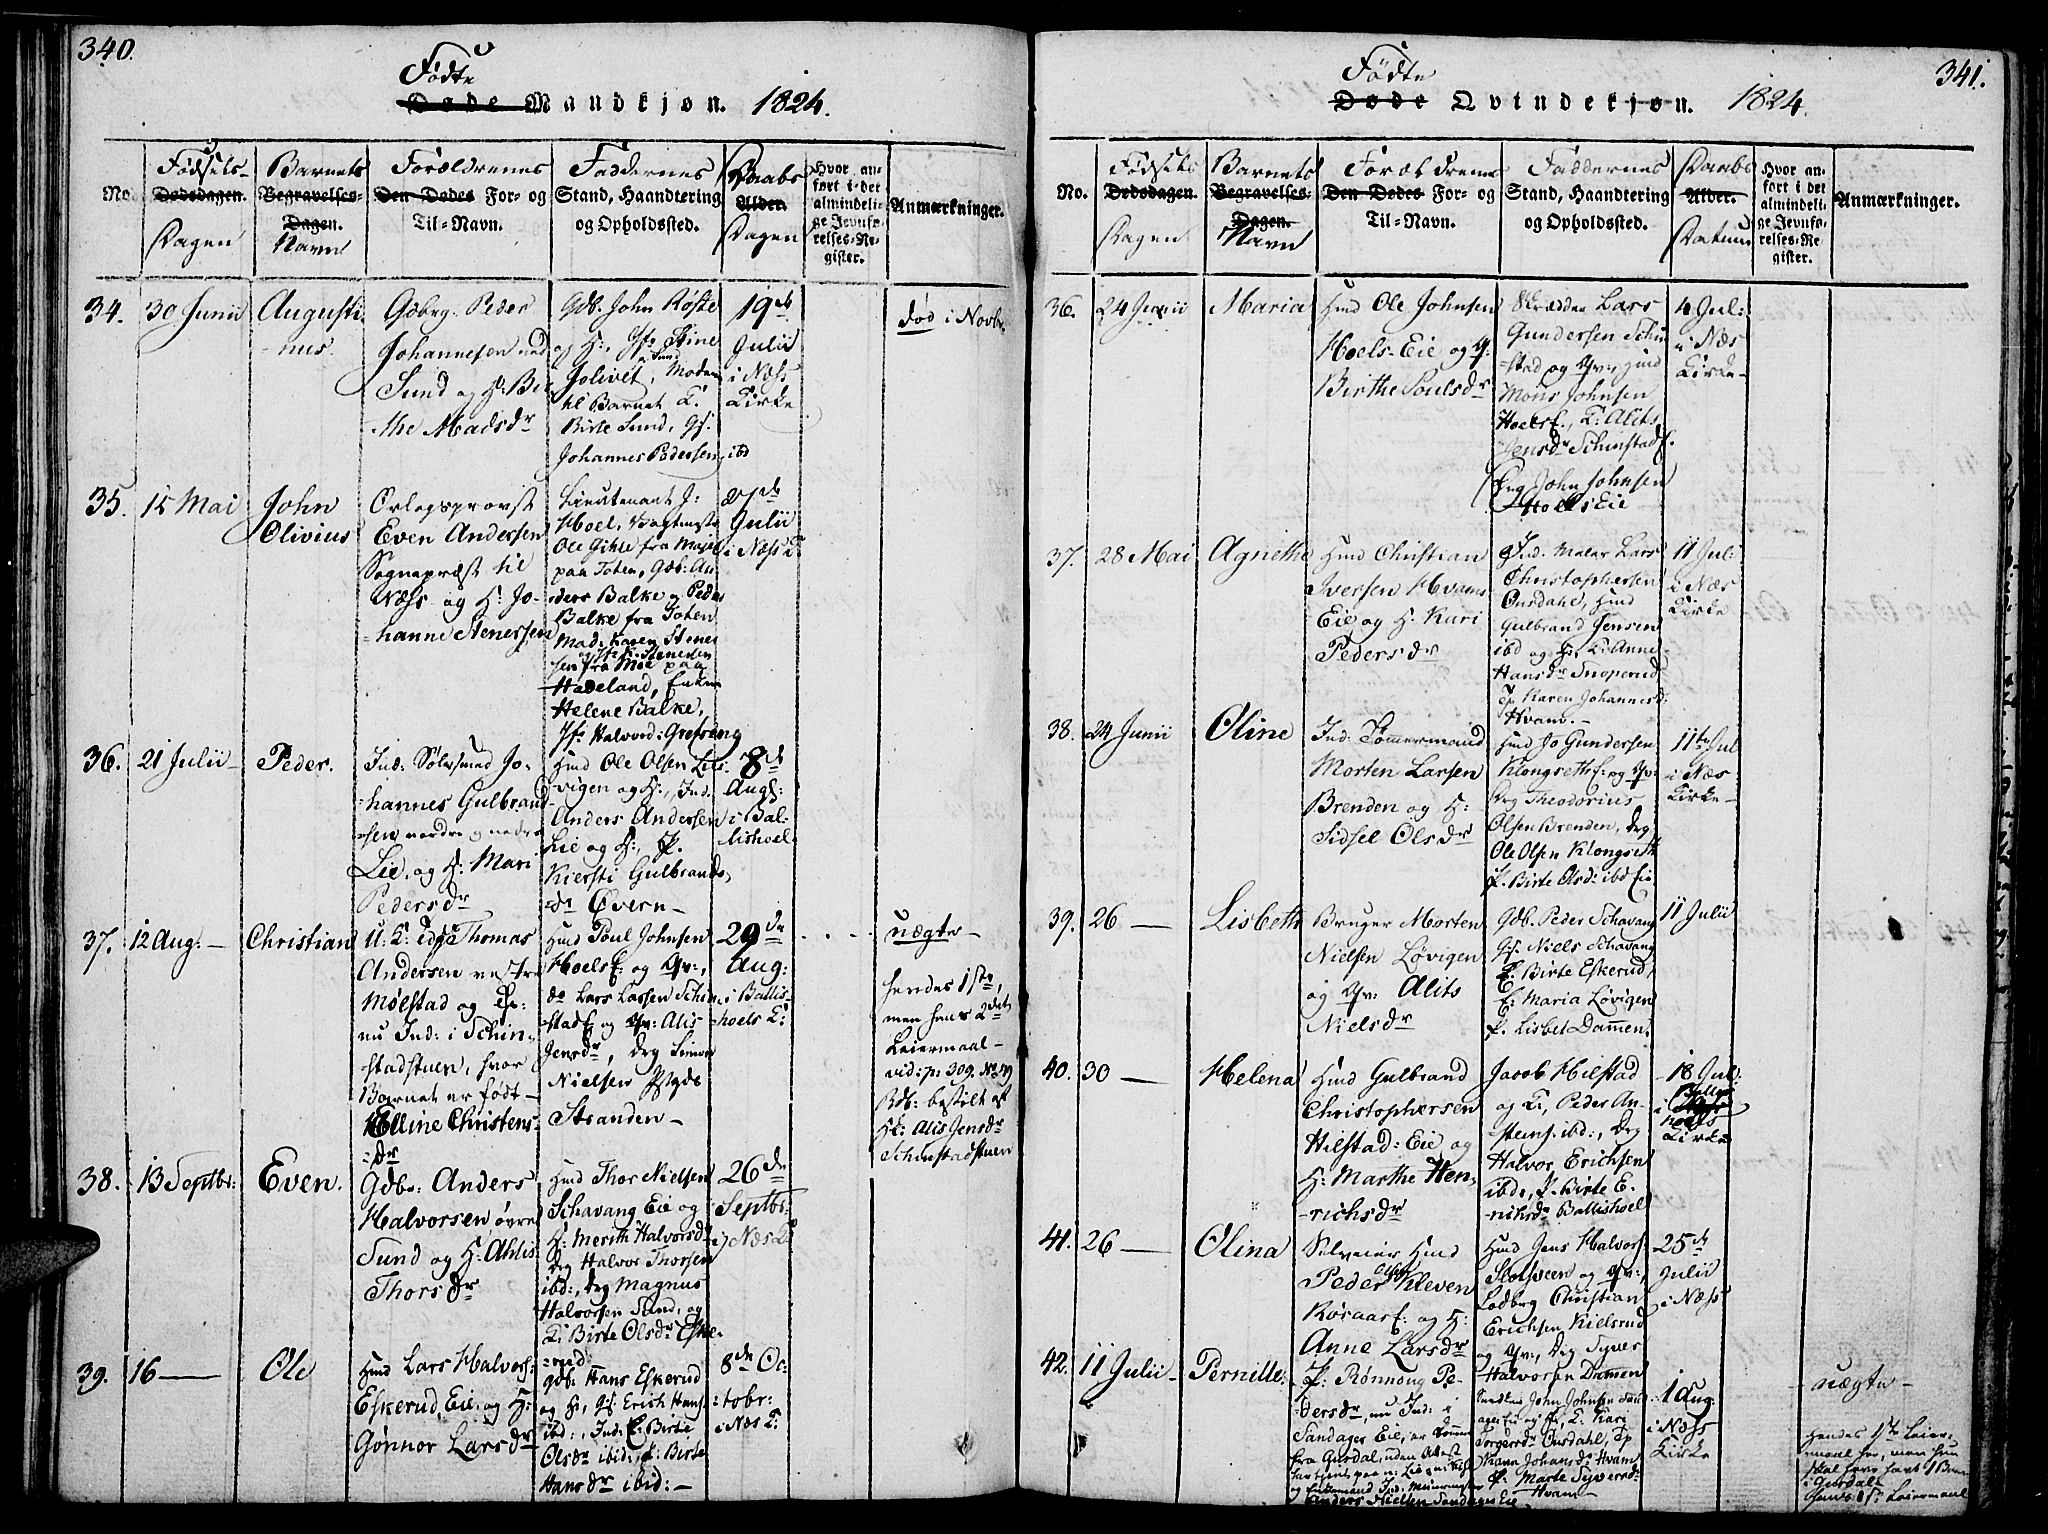 340.
Födte
Døde Mandkjøn. 1824.
No.
Fødsels-
Dødsdagen.
Dagen
Barnets
Begravelses-
Dagen.
Navn
Forældrenes
Den Dødes For- og
Til-Navn.
Faddernes
Stand, Haandtering
og Opholdssted.
Daabs
Alder.
Dagen
Hvor an-
ført i det
almindeli-
ge Jevnfø-
relses-Re-
gister.
Anmærkninger.
34.
30 Junii
Augusti
-nus.
Gdbrg. Peder
Johannesen
Sund og H: Bir
-the Madsdr
Gdb. John Røste
og H:, Jfr Stine
Jolivet,
til Barnet
Birte Sund, Gf.
Johannes Pedersen ibd
19de
Julii
i Næss
Kirke
død i Novbr
35.
15 Mai
John
Olivius
Orlogsprovst
Even Andersen
Sognepræst til
Næss og H: Jo-
-hanne Stenersen
Lieutenant J:
Hoel,
Ole Gihle fra
paa Toten, Gdb: An-
ders Balke og Peder
Balke fra Toten
Mad: Karen Stener
sen fra Moe paa
Hadeland, Enken
Helene Balke,
Jfr Halvord: Grefseng
Julii
i Næss K
36.
21 Julii
Peder.
Ind: Sølvsmed Jo-
-hannes Gulbrand-
-sen nordre og nedre
Lie, og H: Mari
Pedersdr
Hmd Ole Olsen Lø-
vigen og H:, Ind.
Anders Andersen
Lie og H:, P.
Kiersti Gulbrands
-dr Øvern-
8de
Augs:
i Bal-
lishoel
37.
12 Aug:
Christian
U: K: Thomas
Andersen vestre
Møestad og P:
nu Ind: i Schin-
stadstuen, hvor
Barnet er født-
Elline Christens-
-dr
Hmd Poul Johnsen
Hoels E: og Qv:,
do Lars Larsen Schin
-stadE og Qv: Alis
Jensdr, drg Simen
Nielsen
Stranden-
29de
Aug:
i Ballis-
-hoels K:
uægte-
hendes 1ste,
men hans 2det
Leiermaal-
vid: p: 309. No 19
Rdb: bestilt af
H: Alis Jensdr
Schinstadstuen
38.
13 Septbr:
Even.
Gdbr: Anders
Halvorsen øvre
Sund og H: Ahlis
Thorsdr
Hmd Thor Nielsen
Schavang Eie og
H: Merith Halvorsdr
Drg Halvor Thorsen
ibd:, drg Magnus
Halvorsen Sund, og
K: Birte Olsdr Eske-
-rud
26de
Septbr:
i Næs K
39.
16
Ole
Hmd Lars Halvors:
Eskerud Eie, og H:
Gønnor Larsdr
gdb: Hans Eskerud
og H, Gf: Erich Hans.
ibd:, Ind: E: Birte
Olsdr ibid:, P: Birte
Hansdr ibid:-
8de Oc-
tobr:
i Næs K:
341.
Födte
Døde Qvindekjøn. 1824.
No.
Fødsels
Dødsdagen.
Dagen
Barnets
Begravelses-
Dagen.
Navn
Foræl drenes
Den Dødes For- og
Til-Navn.
Faddernes
Stand, Haandtering
og Opholdssted.
Daabs
Alder.
Datum
Hvor an-
ført i det
almindeli-
ge Jevnfø-
relses-Re-
gister.
Anmærkninger.
36.
24 Junii
Maria
Hmd Ole Johnsen
Hoels-Eie og Q:
Birthe Poulsdr
Skrædder Lars
Gundersen Schin
-stad og Qv:, Hmd
Mons Johnsen
HoelsE., K: Alits
Jensdr SchinstadE.
Drg John Johnsen
Hoels Eie
4 Jul:
i Næs
Kirke-
37.
28 Mai
Agnethe
Hmd Christian
Iversen Hvams
Eie og H: Kari
Pedersdr
Ind. Maler Lars
Christophersen
Ousdahl, Hmd
Gulbrand Jensen
ibd og H:, K: Anne
Hansdr Snoperud
P. Karen Johannesd
Hvam.-
11 Jul:
i Næs
Kirke
38.
24 Junii
Oline
Ind: Tømmermand
Morten Larsen
Brenden og H:
Sidsel Olsdr
Hmd Jo Gundersen
Klongseth E: og Qv:
Drg Theodorius
Olsen Brenden, drg
Ole Olsen Klongseth
P. Birte Olsd: ibd Eie
11te Jul
i Næs
Kirke-
39.
26
Lisbeth
Bruger Morten
Nielsen Løvigen
og Qv: Alits
Nielsdr
Gdb. Peder Schavang
Gf. Niels Schavang
K. Birte Eskerud,
E: Maria Løvigen
P. Lisbet Dammen.
11 Julii
40.
30
Helena
Hmd Gulbrand
Christophersen
Hilstad: Eie og
H: Marthe Hen-
-richsdr
Jacob Hilstad
og K:, Peder An-
stens. ibd:, Drg
Halvor Erichsen
ibd:, P. Birte E-
richsdr Ballishoel
18 Jul:
i Ballis
hoels
Kirke
41.
26
Olina
Selveier Hmd
Peder Olsen Kleven
RøraasE: og H:
Anne Larsdr
Hmd Jens Halvors:
Slotsveen og Qv:,
Lodbrg Christian
Erichsen Kielsrud
og Qv:, Drg Syver
Halvorsen Dammen
25de
Julii
i Næss
42.
11 Julii
Pernille.
P: Rønnoug Pe-
dersdr, nu Ind: i
Sandager Eie, er kommen
fra Gusdal, uden Attest
og Enkemand Ind,
Anders Nielsen Sandager Eie
John Johnsen Sand
ager Eie og H:, K: Kari
Torgersdr Ousdahl,
Johansdr Hvam
P. Marte Syversdr
Hvam-
1 Aug.
i Næss
Kirke
uægte-
Hendes 1ste Leier-
maal her, men hun
skal have havt 1 Barn
i Gusdal
hans 1st: Leiermaal